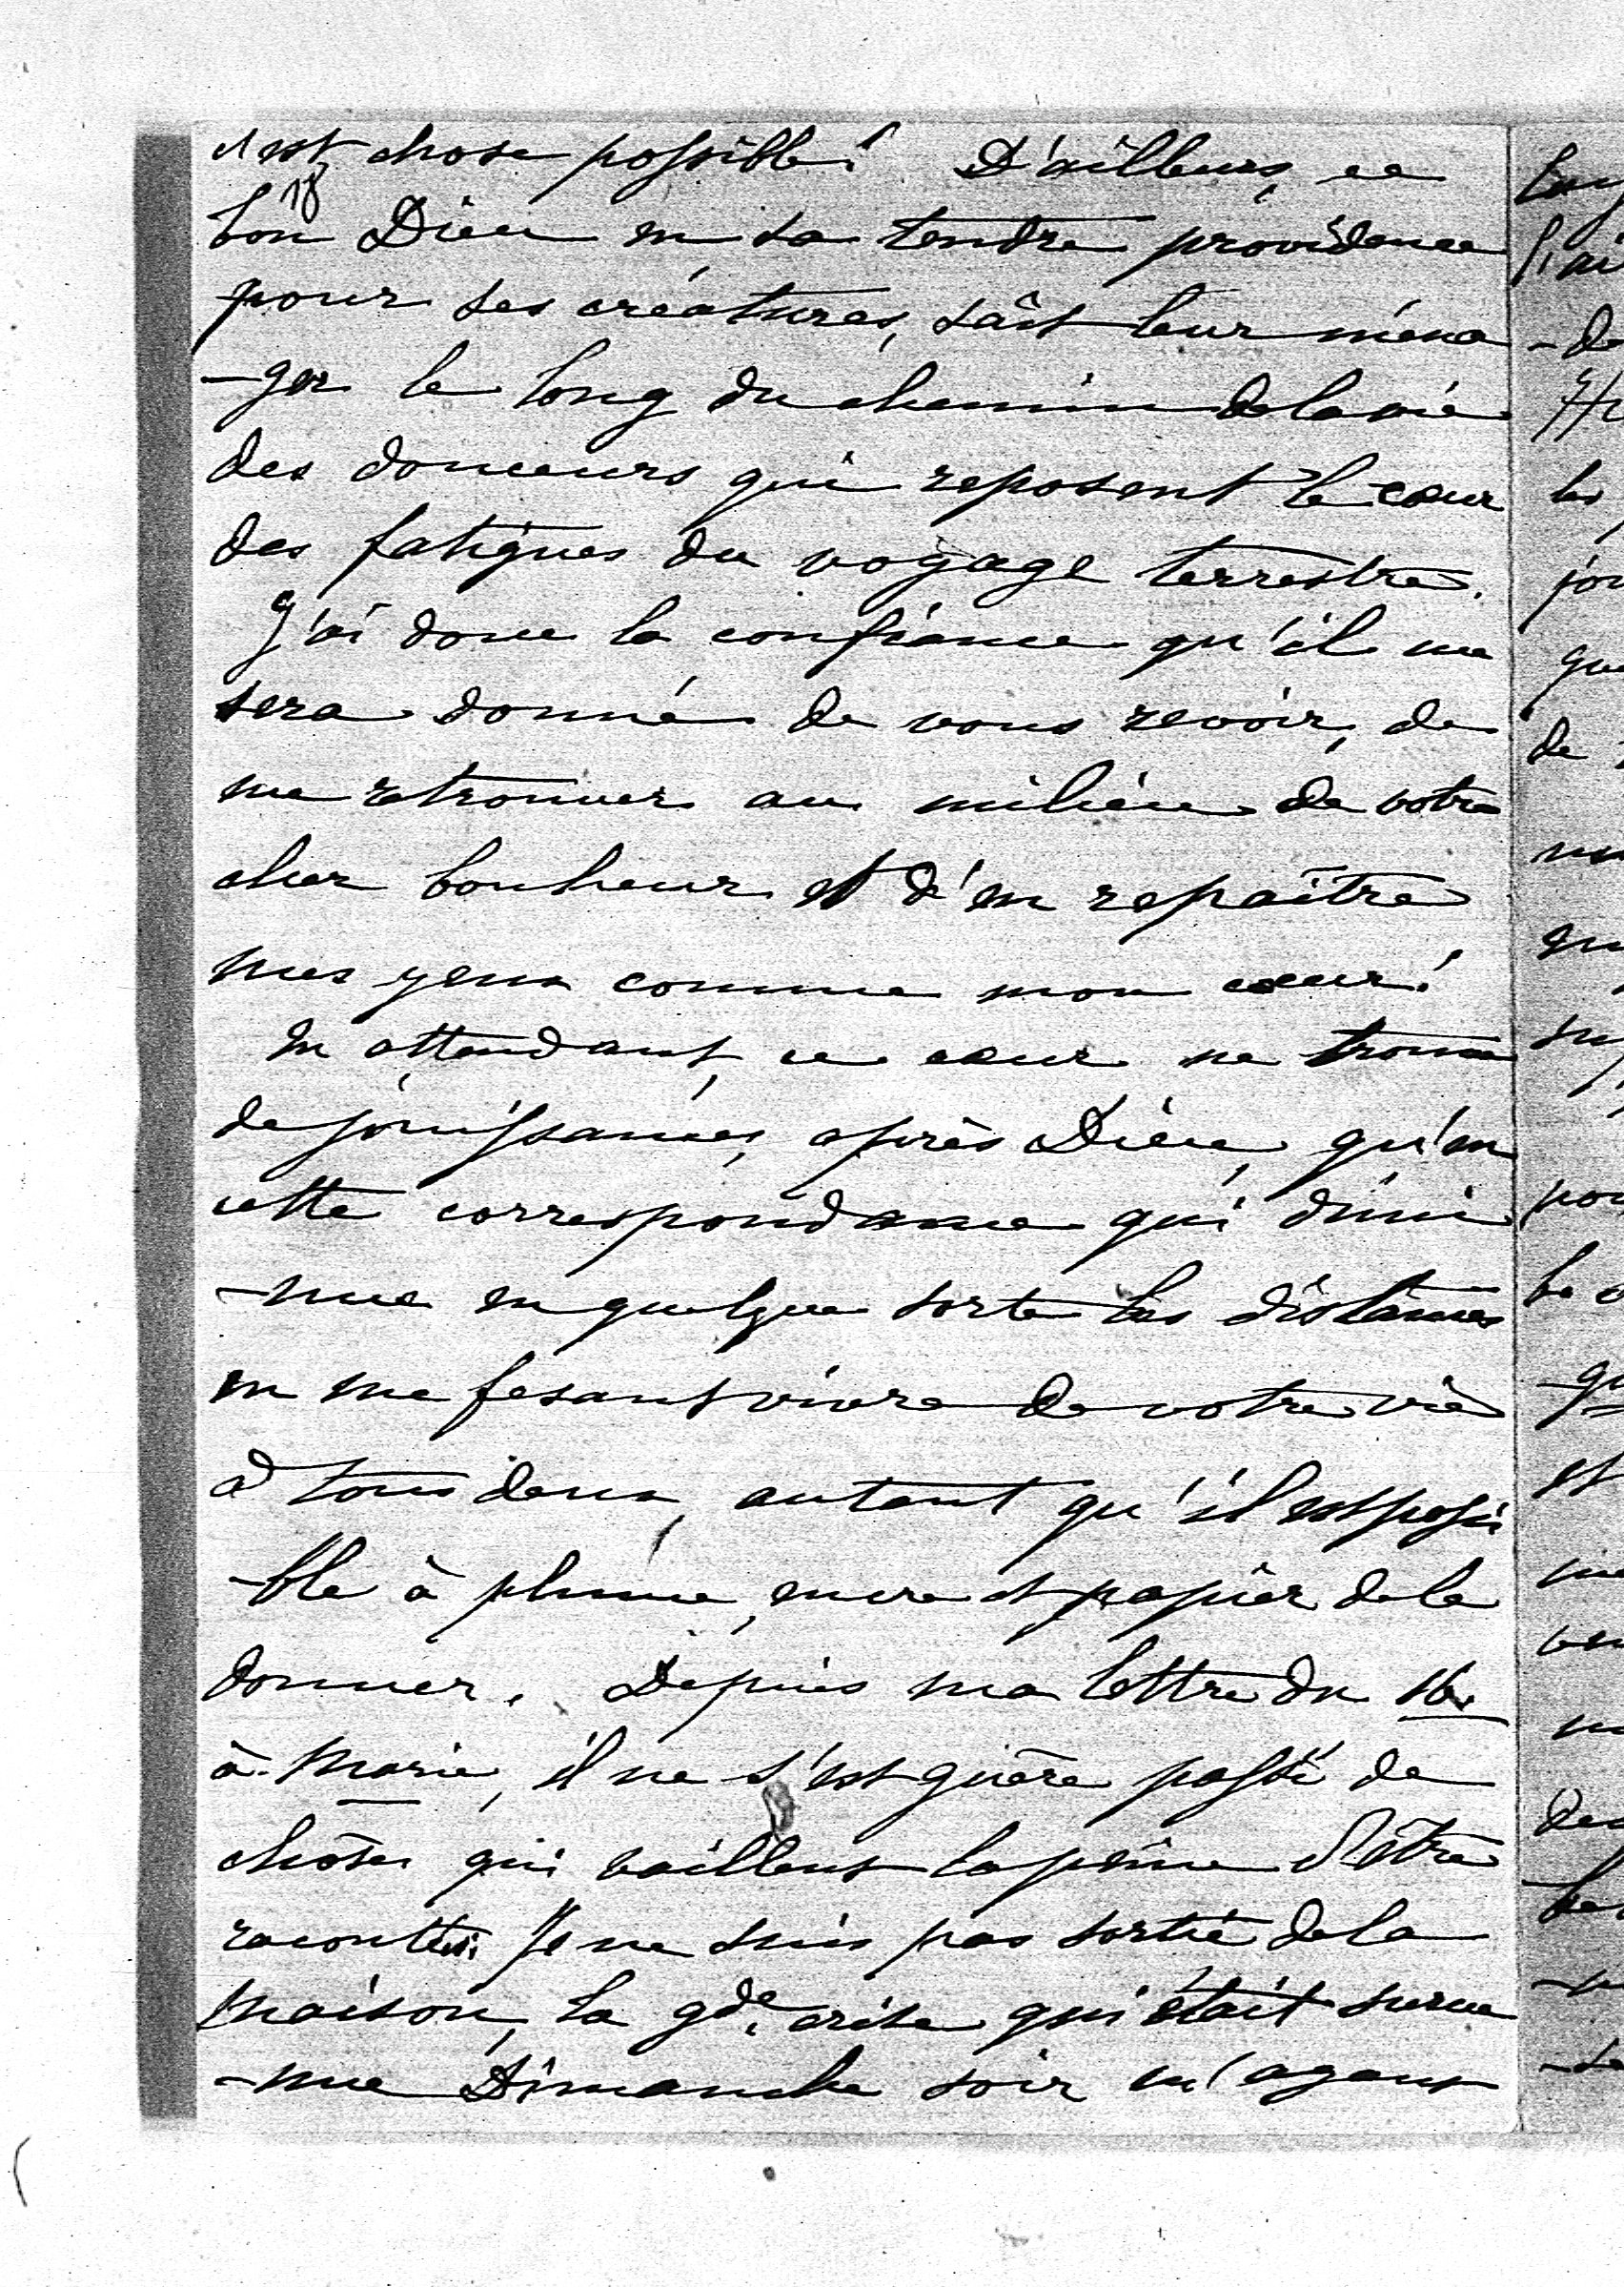 c'est chose possible! D'ailleurs, ce
18
bon Dieu en sa tendre providence
pour ses créatures, sait leur ména
-ger le long du chemin de la vie
des douceurs qui reposent le cœur
des fatigues du voyage terrestre.
J'ai donc la confiance qu'il me
sera donné de vous revoir, de
me retrouver au milieu de votre
cher bonheur et d'en repaître
mes yeux comme mon cœur!
En attendant, ce cœur ne trouve
de jouissances, après Dieu, qu'en
cette correspondance qui dimi
-nue en quelque sorte les distances
en me fesant vivre de votre vie
à tous deux, autant qu'il est possi
-ble à plume, encre et papier de la
donner. Depuis ma lettre du 16
à Marie, il ne s'est guère passé de
choses qui vaillent la peine d'être
racontées. Je ne suis pas sortie de la
maison, la gde. crise qui était surve
-nue Dimanche soir m'ayant